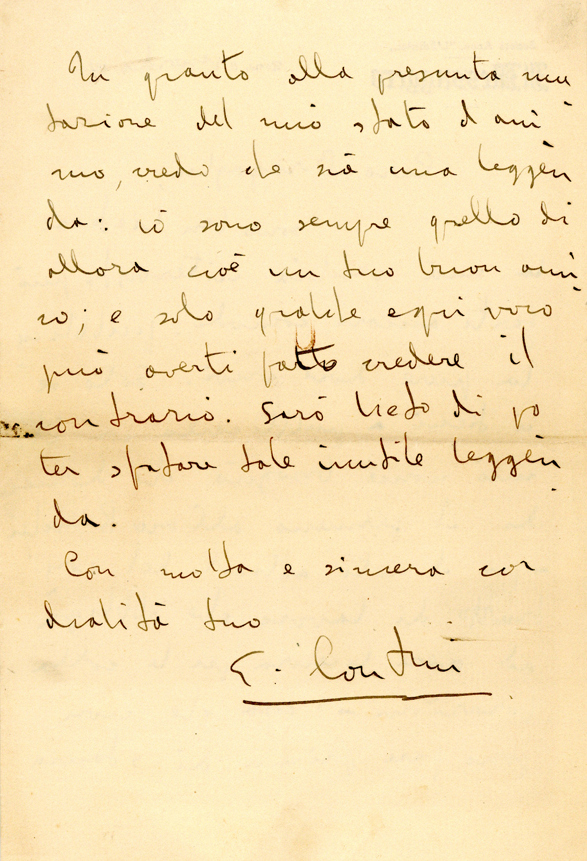 In quanto alla presunta mu
tazione del mio stato d'ani
mo, credo che sia una leggen
da: io sono sempre quello di
allora cioè un tuo buon ami
co; e solo qualche equivoco
può averti fatto credere il
contrario. Sarò lieto di po
ter sfatare tale inutile leggen
da.
Con molta e sincera cor
dialità tuo
E. Contini